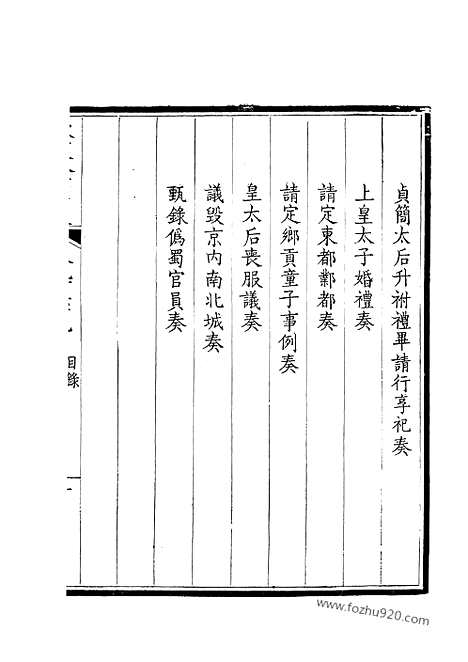 貞簡太后升祔禮畢請行享祀奏
上皇太子婚禮奏
請定東都鄴都奏
請定鄉貢童子事例奏
皇太后喪服議奏
議毀京內南北城奏
甄錄僞蜀官員奏
目錄
www.fozhu920.com